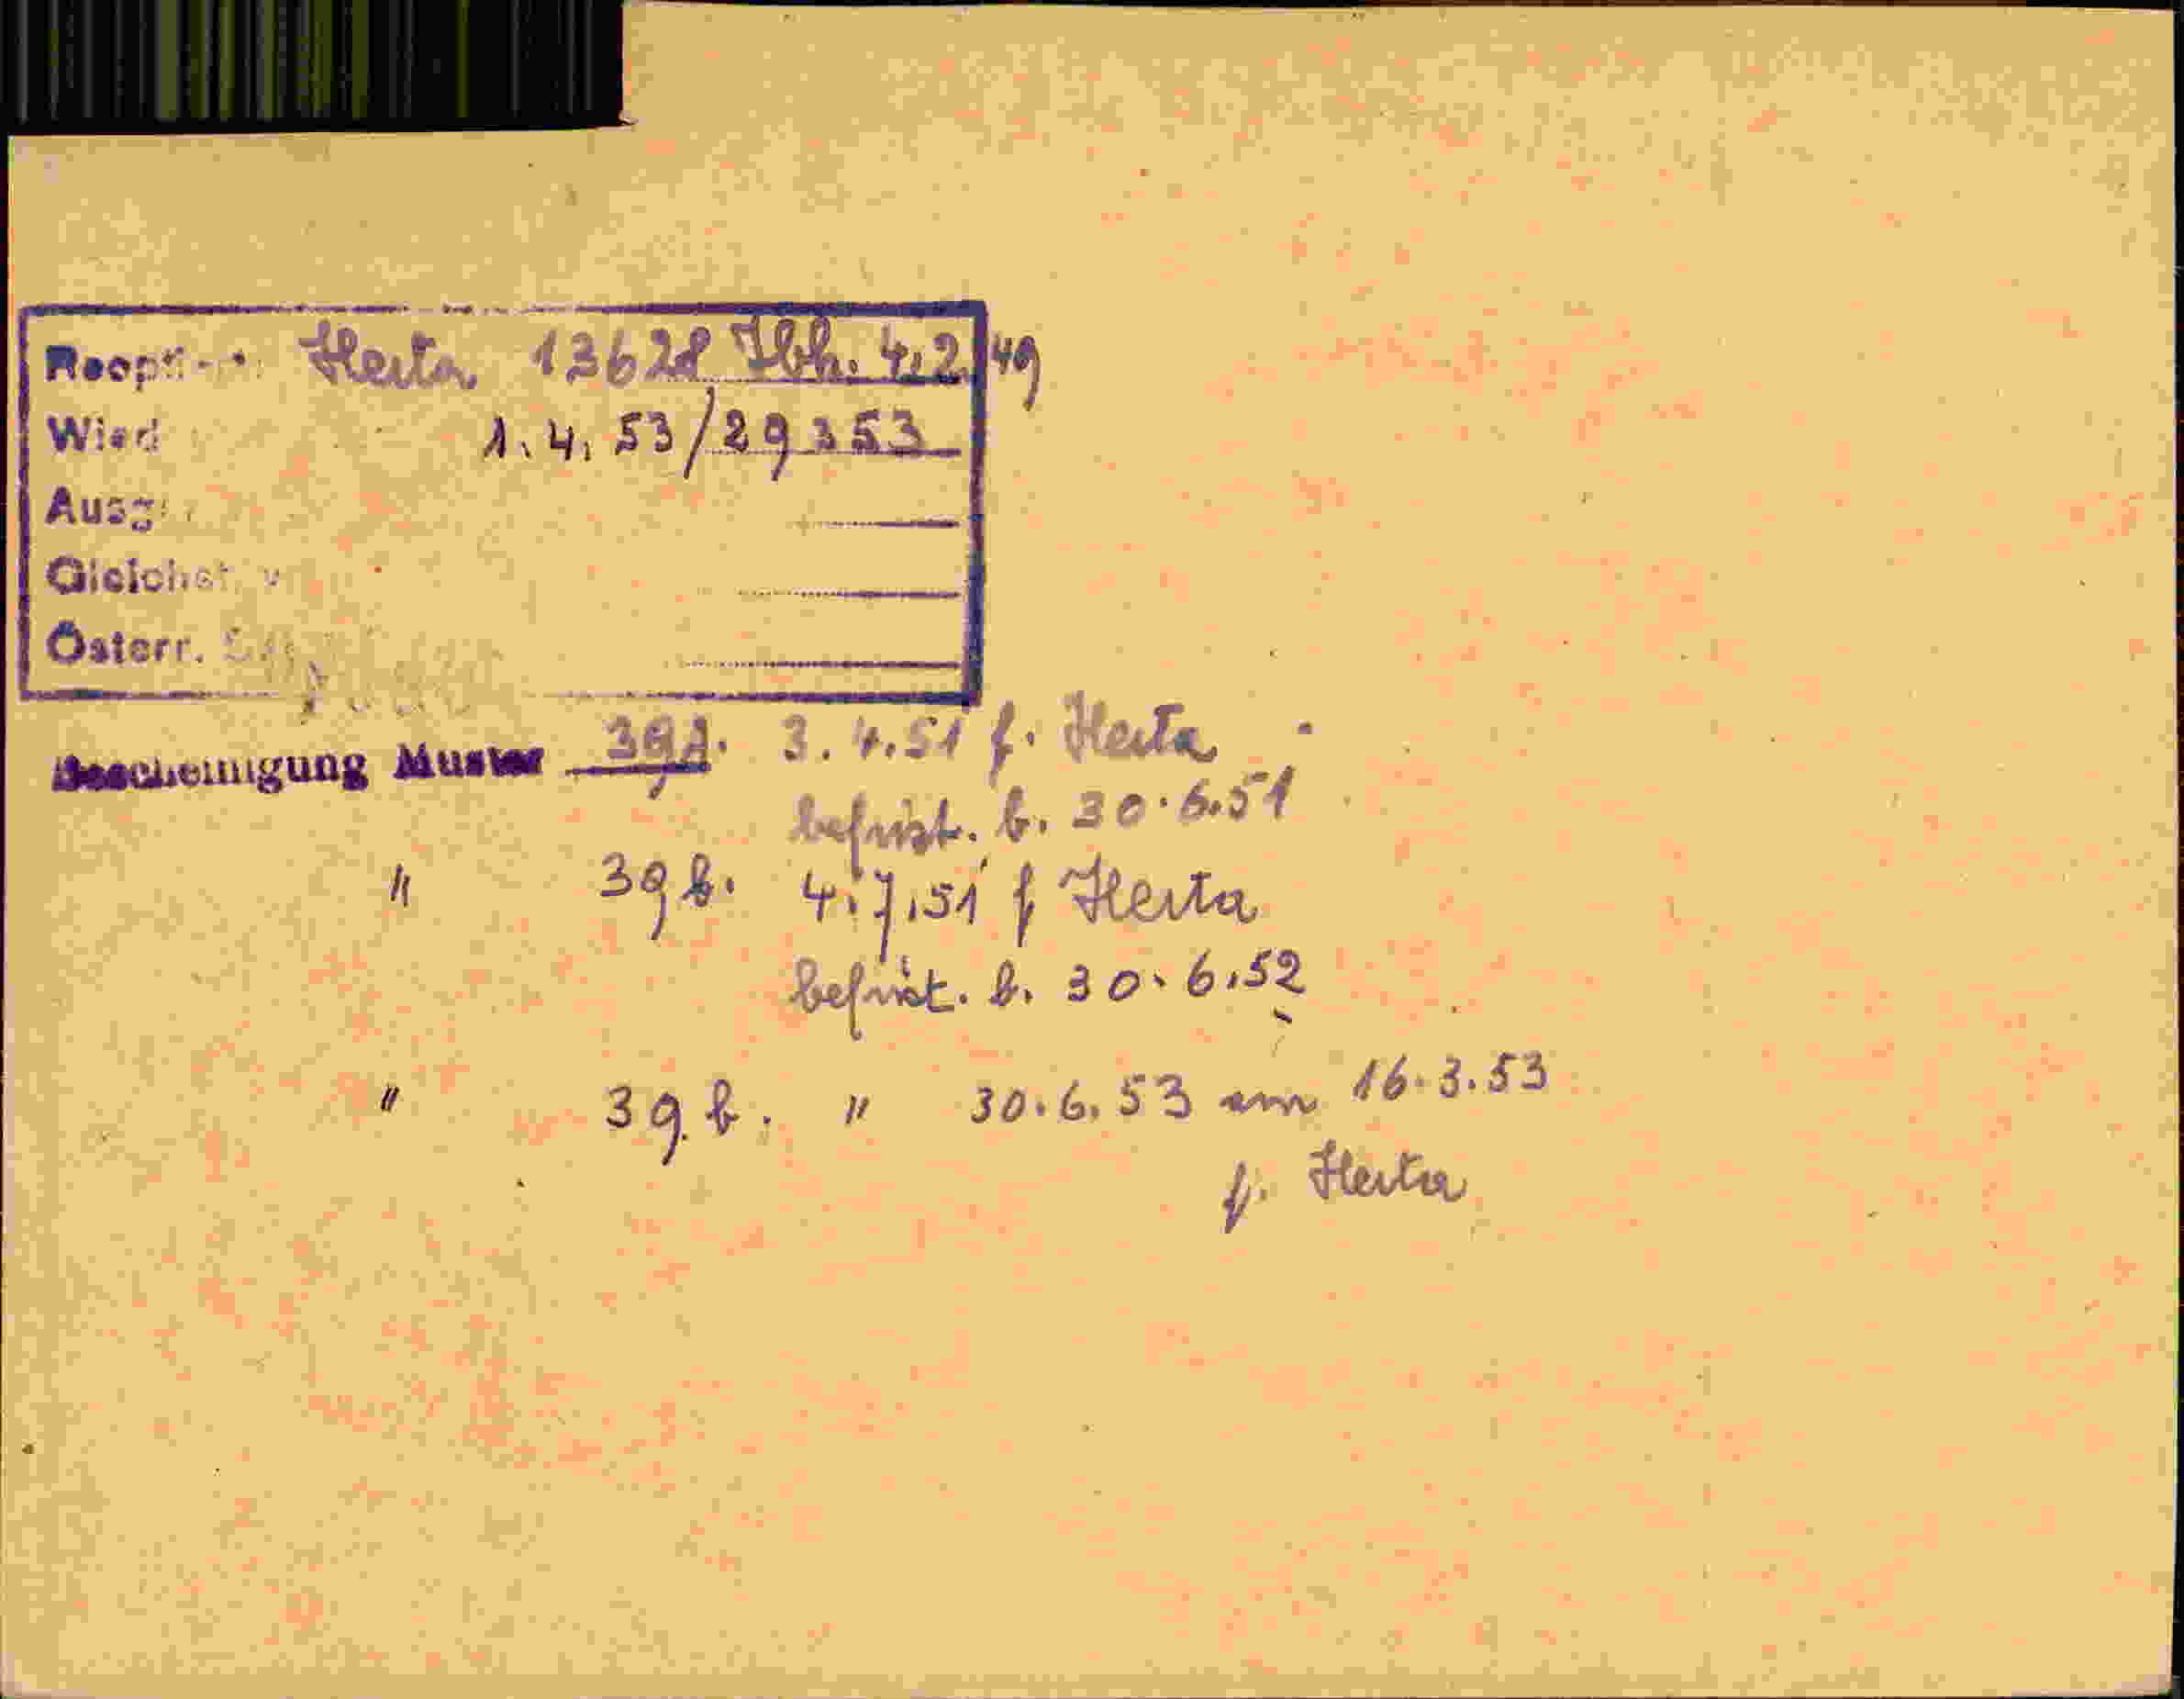 Herta 13628 Ibk. 4.2.49
Wied
1.4.53/29353
Ausg
Gleichst. v
Österr.
Bescheinigung Muster 39 b. 3.4.51 f. Herta
befrist. b. 30.6.51
" 39 b. 4.7.51 f Herta
befrist. b. 30.6.52
" 39 b. " 30.6.53 am 16.3.53
f. Herta